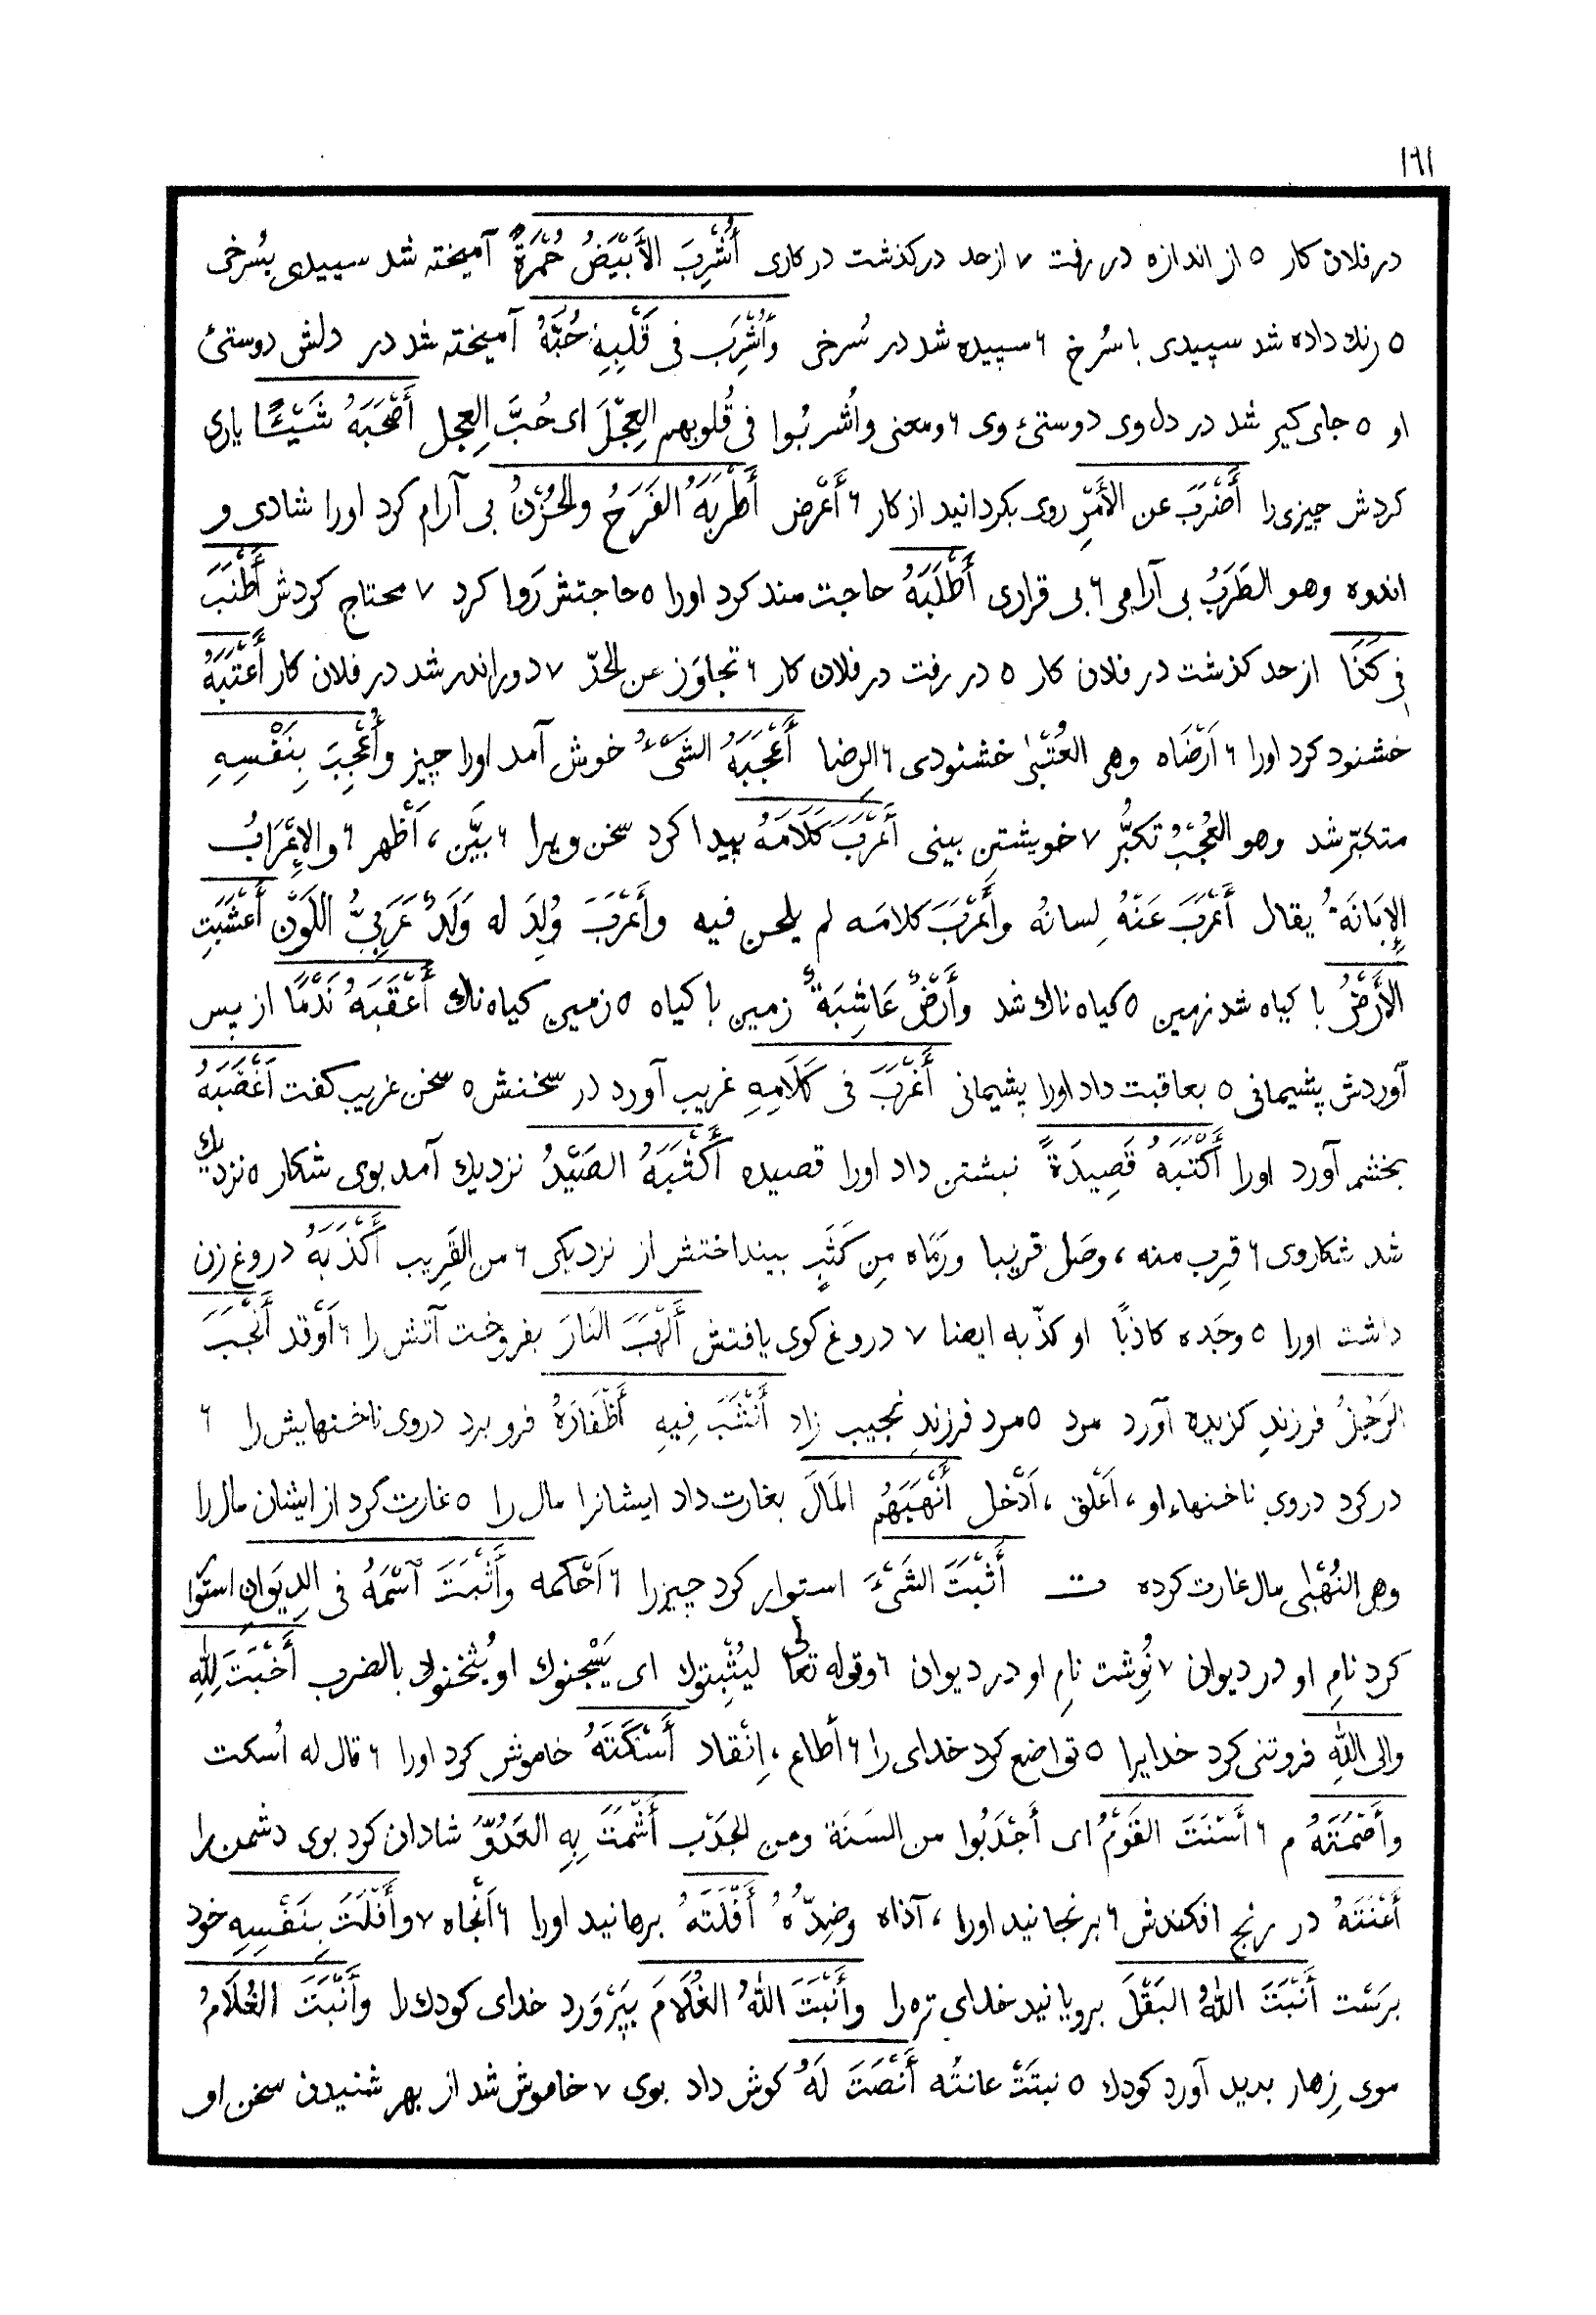 ١٦١
در فلان کار ٥ از اندازه در رفت ٧ از حد درکذشت در کاری أُشْرِبَ الأَبْيَضُ حُمْرَةً آمیخته شد سپیدی بسُرخی
٥ رنك داده شد سپیدی با سُرخ ٦ سپیده شد در سُرخی وَأُشْرِبَ فى قَلْبِهِ حُبَّهُ آمیخته شد در دلش دوستئ
او ٥ جای کیر شد در دل وی دوستئ وی ٦ ومعنى وأُشربُوا فى قُلوبهم العِجْلَ ای حُبَّ العِجل أَصْحَبَهُ شَيْئًا یاری
کردش چیزی را أَضْرَبَ عن الأَمْرِ روی بکردانید از کار ٦ أَعْرض أَطْرَبَهُ الفَرَحُ والحُزْنُ بی آرام کرد اورا شادی و
اندوه وهو الطَرَبُ بی آرامی ٦ بی قراری أَطْلَبَهُ حاجت مند کرد اورا ٥ حاجتش رَوا کرد ٧ محتاج کردش أَطْنَبَ
فِى كَذَا از حد کذشت در فلان کار ٥ در رفت در فلان کار ٦ تجاوَز عن الحدّ ٧ دور اندر شد در فلان کار أَعْتَبَهُ
خشنود کرد اورا ٦ اَرَضَاه وهى العُتْبَى خشنودی ٦ الرِضا أَعْجَبَهُ الشَىْءُ خوش آمد اورا چیز وأُعْجِبَ بِنَفْسِهِ
متکبّر شد وهو العُجْبُ تكبُّر ٧ خویشتن بینی أَعْرَبَ كَلَامَهُ پیدا کرد سخن ویرا ٦ بيَّن ، اَظْهر ٦ والإِعْرَابُ
الإِبَانَةُ يقال أَعْرَبَ عَنْهُ لِسانُهُ وأَعْرَبَ كلامَه لم يلحن فيه وأَعْرَبَ وُلِدَ له وَلَدٌ عَرَبِىُّ اللَوْنِ أَعْشَبَتِ
الأَرْضُ با کیاه شد زمین ٥ کیاه ناك شد وأَرْضٌ عَاشِبَةٌ زمین با کیاه ٥ زمین کیاه ناك أَعْقَبَهُ نَدَمًا از پس
آوردش پشیمانی ٥ بعاقبت داد اورا پشیمانی أَغْرَبَ فى كَلَامِهِ غریب آورد در سخنش ٥ سخن غریب کفت أَغْضَبَهُ
بخشم آورد اورا أَكْتَبَهُ قَصِيدَةً نبشتن داد اورا قصیده أَكْثَبَهُ الصَيْدُ نزدیك آمد بوی شکار ٥ نزدیك
شد شکاروی ٦ قرب منه ، وصَل قریبا ورَمَاه مِن كَثَبٍ بینداختش از نزدیکی ٦ من القَرِيب أَكْذَبَهُ دروغ زن
داشت اورا ٥ وجَده كاذبًا او كذّبه ايضا ٧ دروغ کوی یافتش أَلْهَبَ النَارَ بفروخت آتش را ٦ اَوْقد أَنْجَبَ
الرَجُلُ فرزندِ کزیده آورد مرد ٥ مرد فرزندِ نجیب زاد أَنْشَبَ فِيهِ أَظْفَارَهُ فرو برد دروی ناخنهایش را ٦
در کرد دروی ناخنهاء او ، اَعْلق ، اَدْخل أَنْهَبَهُم المَالَ بغارت داد ایشانرا مال را ٥ غارت کرد از ایشان مال را
وهى النُهْبَى مال غارت کرده ت أَثْبَتَ الشَىْءَ استوار کرد چیز را ٦ اَحْكمه وأَثْبَتَ ٱسْمَهُ فى الدِيوَانِ استوا
کرد نامِ او در دیوان ٧ نُوِشت نامِ او در دیوان ٦ وقوله تعالى ليُثْبِتوك اى يَسْجنوك او يُثخنوك بالضرب أَخْبَتَ لِلّٰهِ
والى اللّٰهِ فروتنی کرد خدایرا ٥ تواضع کرد خدای را ٦ أَطاع ، اِنْقاد أَسْكَتَهُ خاموش کرد اورا ٦ قال له اُسكت
وأَصْمَتَهُ م ٦ أَسْنَتَ القَوْمُ اى أَجْدَبُوا من السَنَة ومن الجَدْب أَشْمَتَ بِهِ العَدُوَّ شادان کرد بوی دشمن را
أَعْنَتَهُ در رنج افکندش ٦ برنجانید اورا ، آذاه وضِدُّهُ أَفْلَتَهُ برهانید اورا ٦ اَنْجاه ٧ وأَفْلَتَ بِنَفْسِهِ خود
برَست أَنْبَتَ اللّٰهُ البَقْلَ برویانید خدای تره را وأَنْبَتَ اللّٰهُ الغُلَامَ بپَرْوَرد خدای کودك را وأَنْبَتَ الغُلَامُ
موی زِهار بدید آورد کودك ٥ نبتَتْ عانتُه أَنْصَتَ لَهُ کوش داد بوی ٧ خاموش شد از بهر شنیدن سخن او